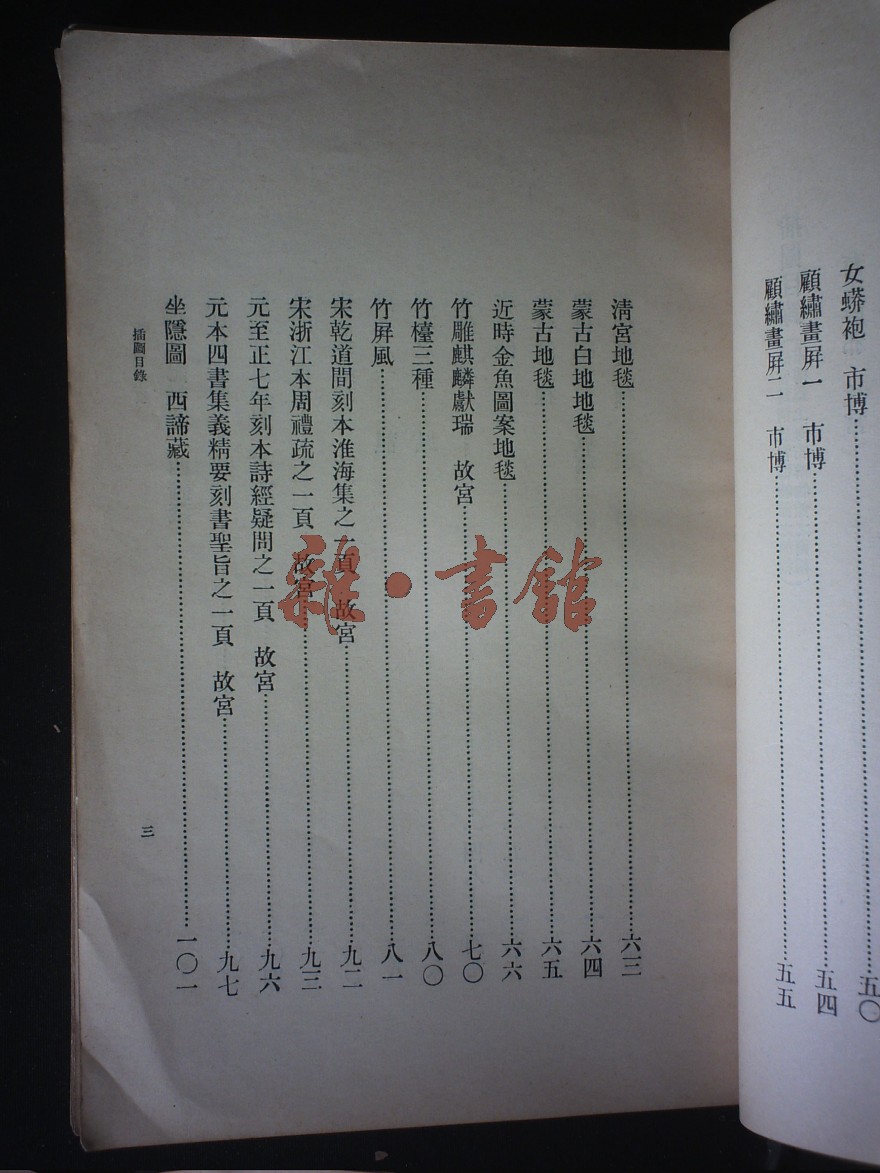 女蟒袍　市博……五〇
顧繡畫屏一　市博……五四
顧繡畫屏二　市博……五五
清宮地毯……六三
蒙古白地地毯……六四
蒙古地毯……六五
近時金魚圖案地毯……六六
竹雕麒麟獻瑞　故宮……七〇
竹檯三種……八〇
竹屏風……八一
宋乾道間刻本淮海集之一頁　故宮……九二
宋浙江本周禮疏之一頁　故宮……九三
元至正七年刻本詩經疑問之一頁　故宮……九六
元本四書集義精要刻書聖旨之一頁　故宮……九七
坐隱圖　西諦藏……一〇一
插圖目錄
三
雜·書館